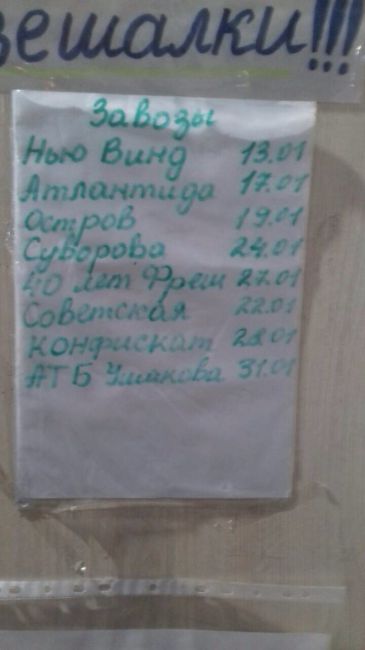 вешалки!!!
Завозы
Нью Винд 13.01
Атлантида 17.01
Остров 19.01
Суворова 24.01
40 лет Фреш 27.01
Советская 22.01
Конфискат 28.01
АТБ Ушакова 31.01